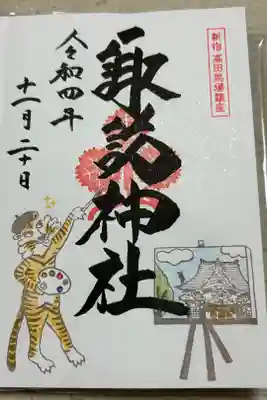 新宿 高田馬場鎮座
諏訪神社
令和四年
十一月二十日